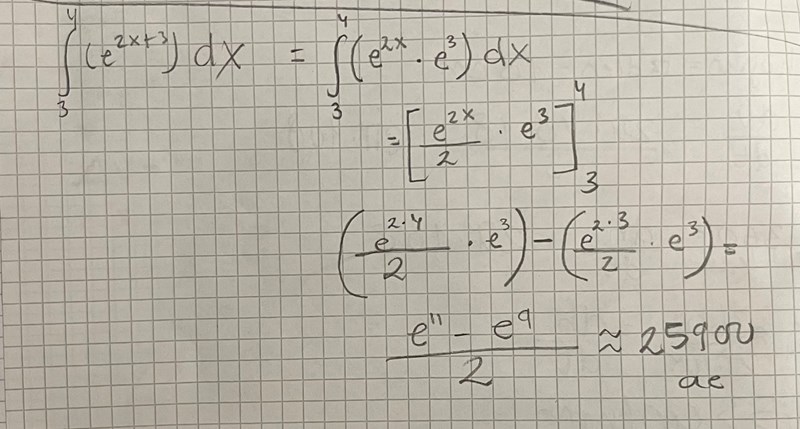 ∫₃⁴ (e^(2x+3)) dx = ∫₃⁴ (e^(2x) · e³) dx
= [e^(2x)/2 · e³]₃⁴
(e^(2·4)/2 · e³) − (e^(2·3)/2 · e³) =
(e¹¹ − e⁹)/2 ≈ 25900
ae